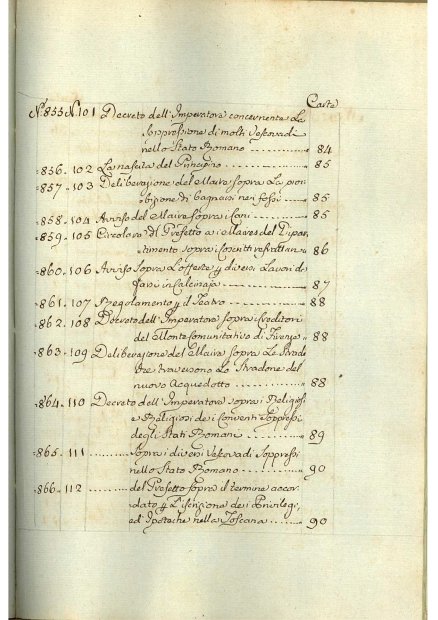 Carte
N.° 855 N. 101 Decreto dell'Imperatore concernente la
Soppressione di molti Vescovadi
nello Stato Romano 84
= 856. 102 La nascita del Principino 85
= 857. 103 Deliberazione del Maire sopra la proi
bizione di bagnarsi nei fossi 85
= 858. 104 Avviso del Maire sopra i Cani 85
= 859. 105 Circolare del Prefetto ai Maires del Dipar
timento sopra i Coscritti refrattari 86
= 860. 106 Avviso sopra l'offerte p diversi Lavori da
farsi in Calcinaja 87
= 861. 107 Regolamento p il Teatro 88
= 862. 108 Decreto dell'Imperatore sopra i Creditori
del Monte Comunitativo di Firenze 88
= 863. 109 Deliberazione del Maire sopra le Strade
che traversono lo Stradone del
nuovo Acquedotto 88
= 864. 110 Decreto dell'Imperatore sopra i Religiosi
e Religiosi dei Conventi Soppressi
degli Stati Romani 89
= 865. 111 Sopra i diversi Vescovadi Soppressi
nello Stato Romano 90
= 866. 112 del Prefetto sopra il termine accor
dato p l'iscrizione dei Privilegi,
ed Ipoteche nella Toscana 90